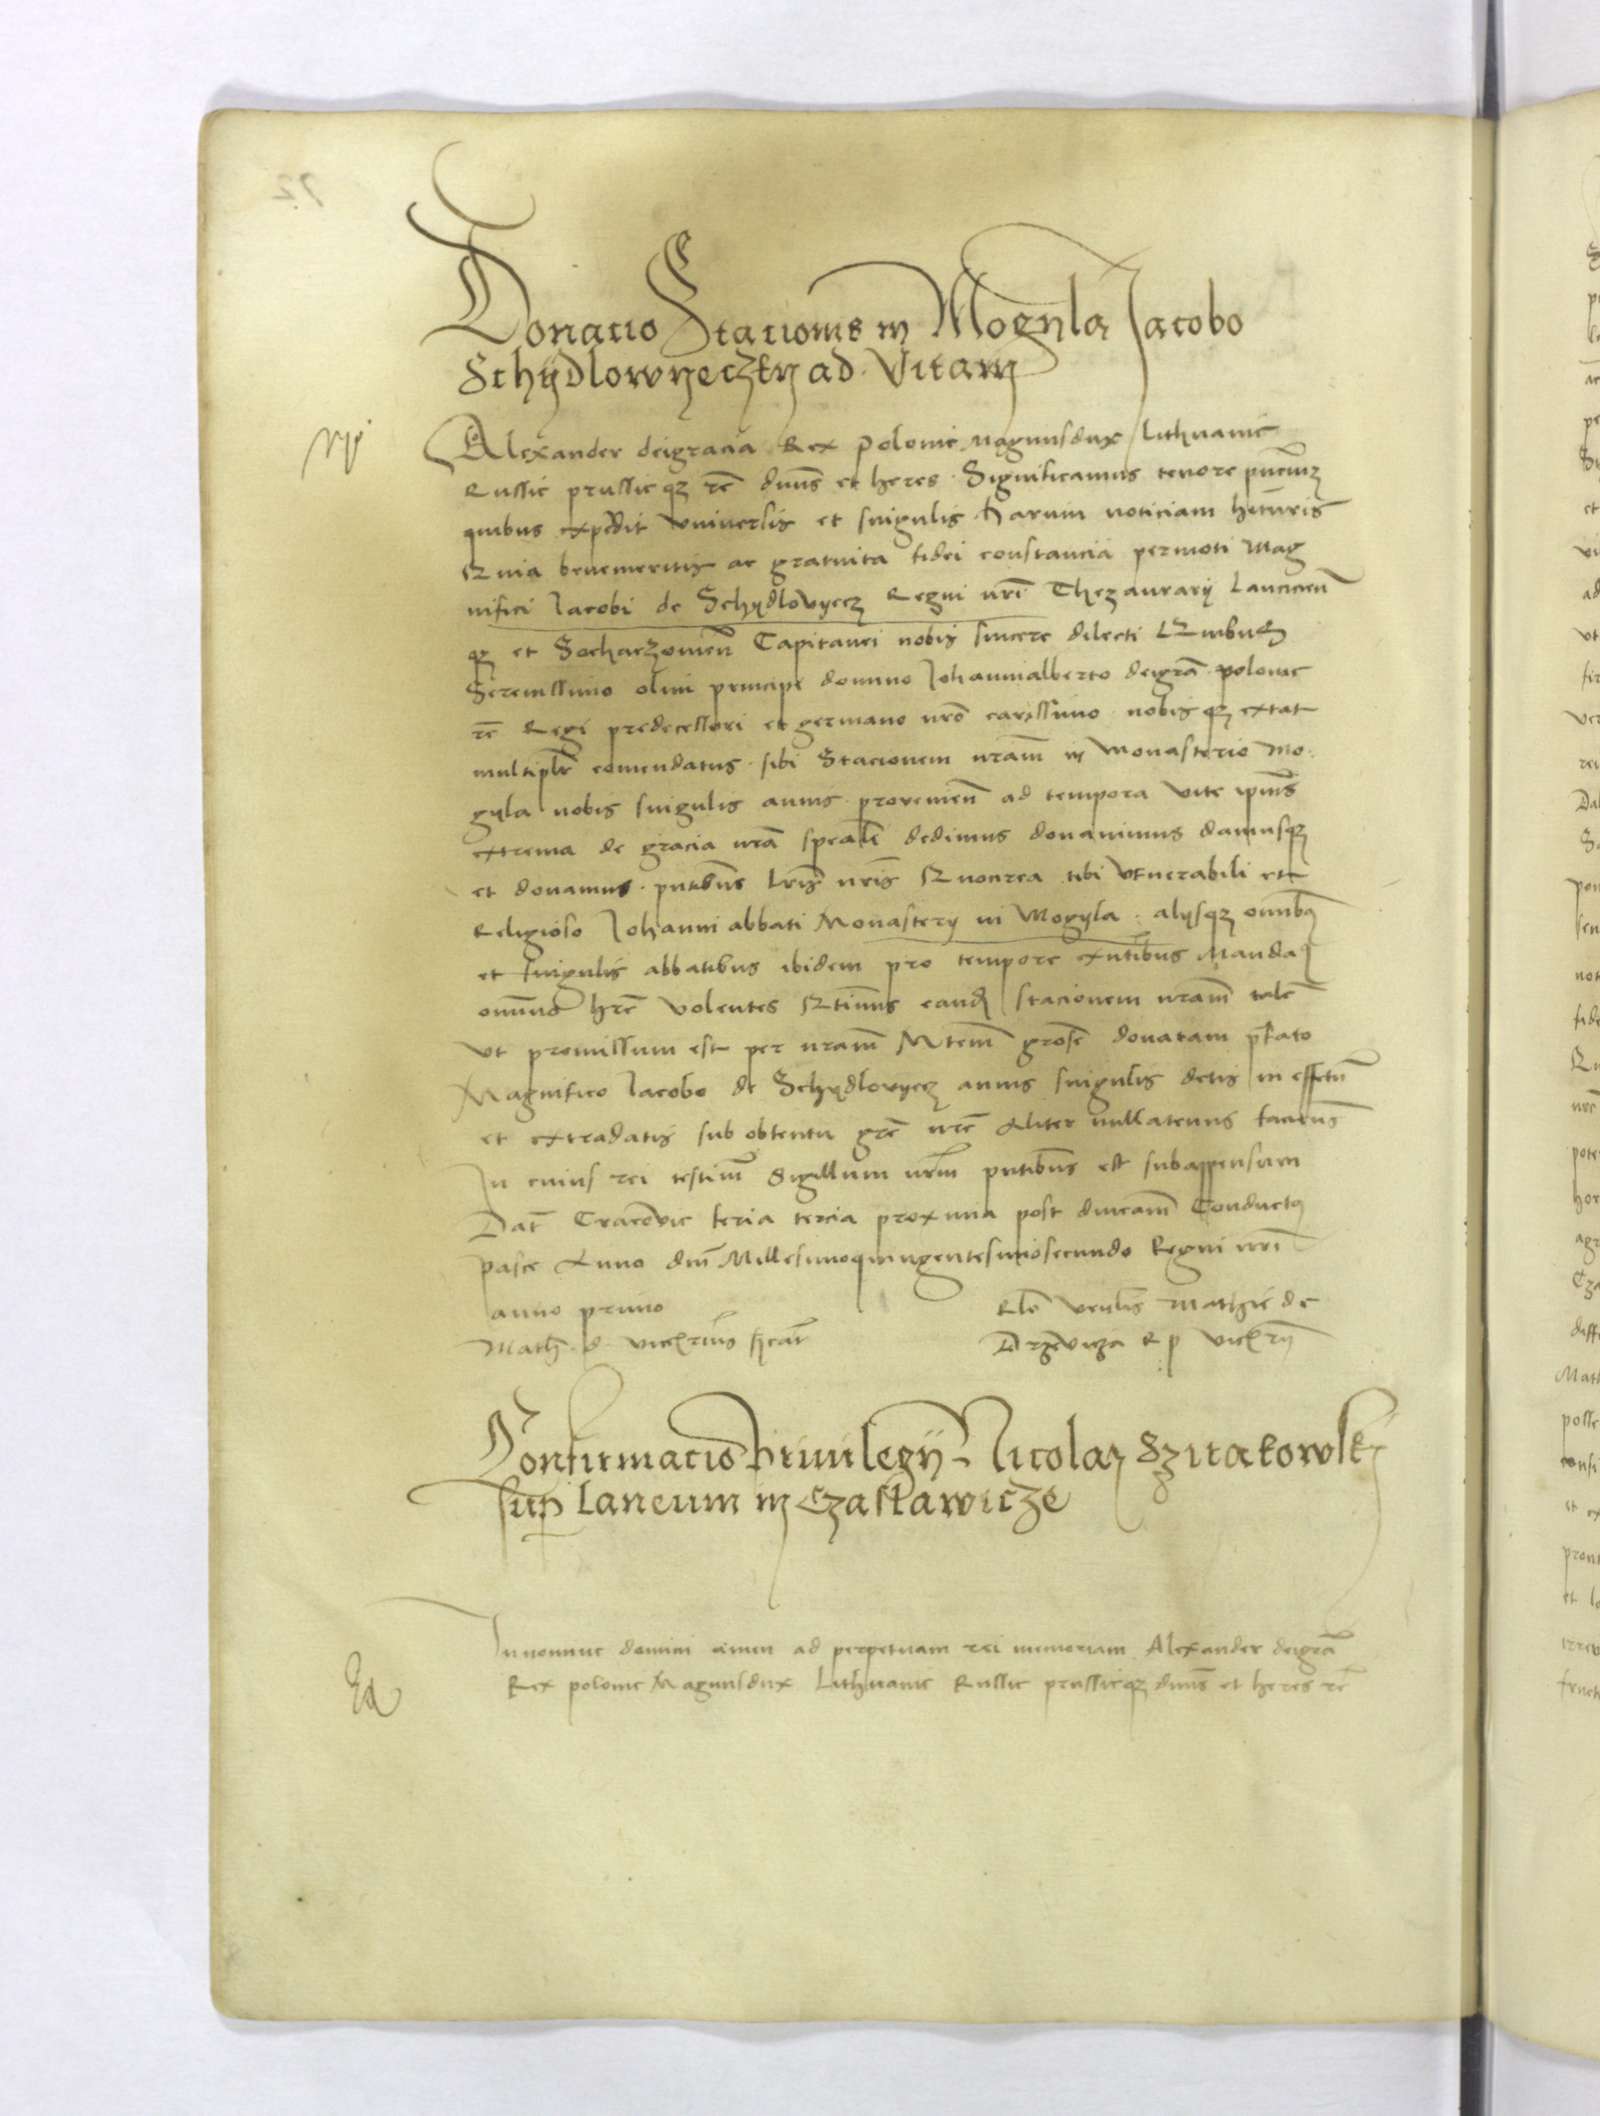 72
Donacio Stacionis in Mogyla Jacobo
Schÿdlowyeczky ad Vitam
Alexander deigracia Rex Polonie magnusdux Lithvanie
Russie prussieqz rē dūns et heres Significamus tenore pn̄ciuz
quibus expedit vniversis et singulis harum noticiam hituris
Quia benemeritis ac gratuita fidei constancia permoti Mag
nifici Jacobi de Schydlovyecz Regni nrī Thezaurarÿ Lancicien̄
qz et Sochaczowien̄ Capitanei nobis sincere dilecti Quibus
Serenissimo olim principi domino Johannialberto deigrā polonie
rē Regi predecessori et germano nrō carissimo nobisqz extat
multiplr̄ comendatus sibi Stacionem nram̄ in monasterio Mo
gyla nobis singulis annis provenien̄ ad tempora vite ipsius
extrema de gracia nrā spealī dedimus donavimus damusqz
et donamus pn̄tibus lrīs nrīs Quocirca tibi venerabili et
Religioso Johanni abbati Monasterÿ in Mogyla alÿsqz omībus
et singulis abbatibus ibidem pro tempore exn̄tibus Manda
omnino hrē volentes Qtinus eand stacionem nram̄ talē
vt premissum est per nram̄ Mtem̄ grosē donatam pfato
Magnifico Jacobo de Schydlovyecz annis singulis detis in effectū
et extradatis sub obtentu grē nrē Aliter nullatenus facturus
In cuius rei testim̄ Sigillum nrm̄ pn̄tibus est subappensum
Dat̄ Cracovie feria tercia proxima post dnicam̄ Conductus
pasce Anno dnī Millesimoquingentesimosecundo Regni nrī
anno primo
Relō venlīs Mathie de
Drzevicza R p vicecan̄
Confirmacio Privilegÿ Nicolai Szirakowsky
sup Laneum in Czaslawicze
Innomine domini amen ad perpetuam rei memoriam Alexander deigrā
Rex polonie Magnusdux Lithvanie Russie prussieqz dūns et heres rē